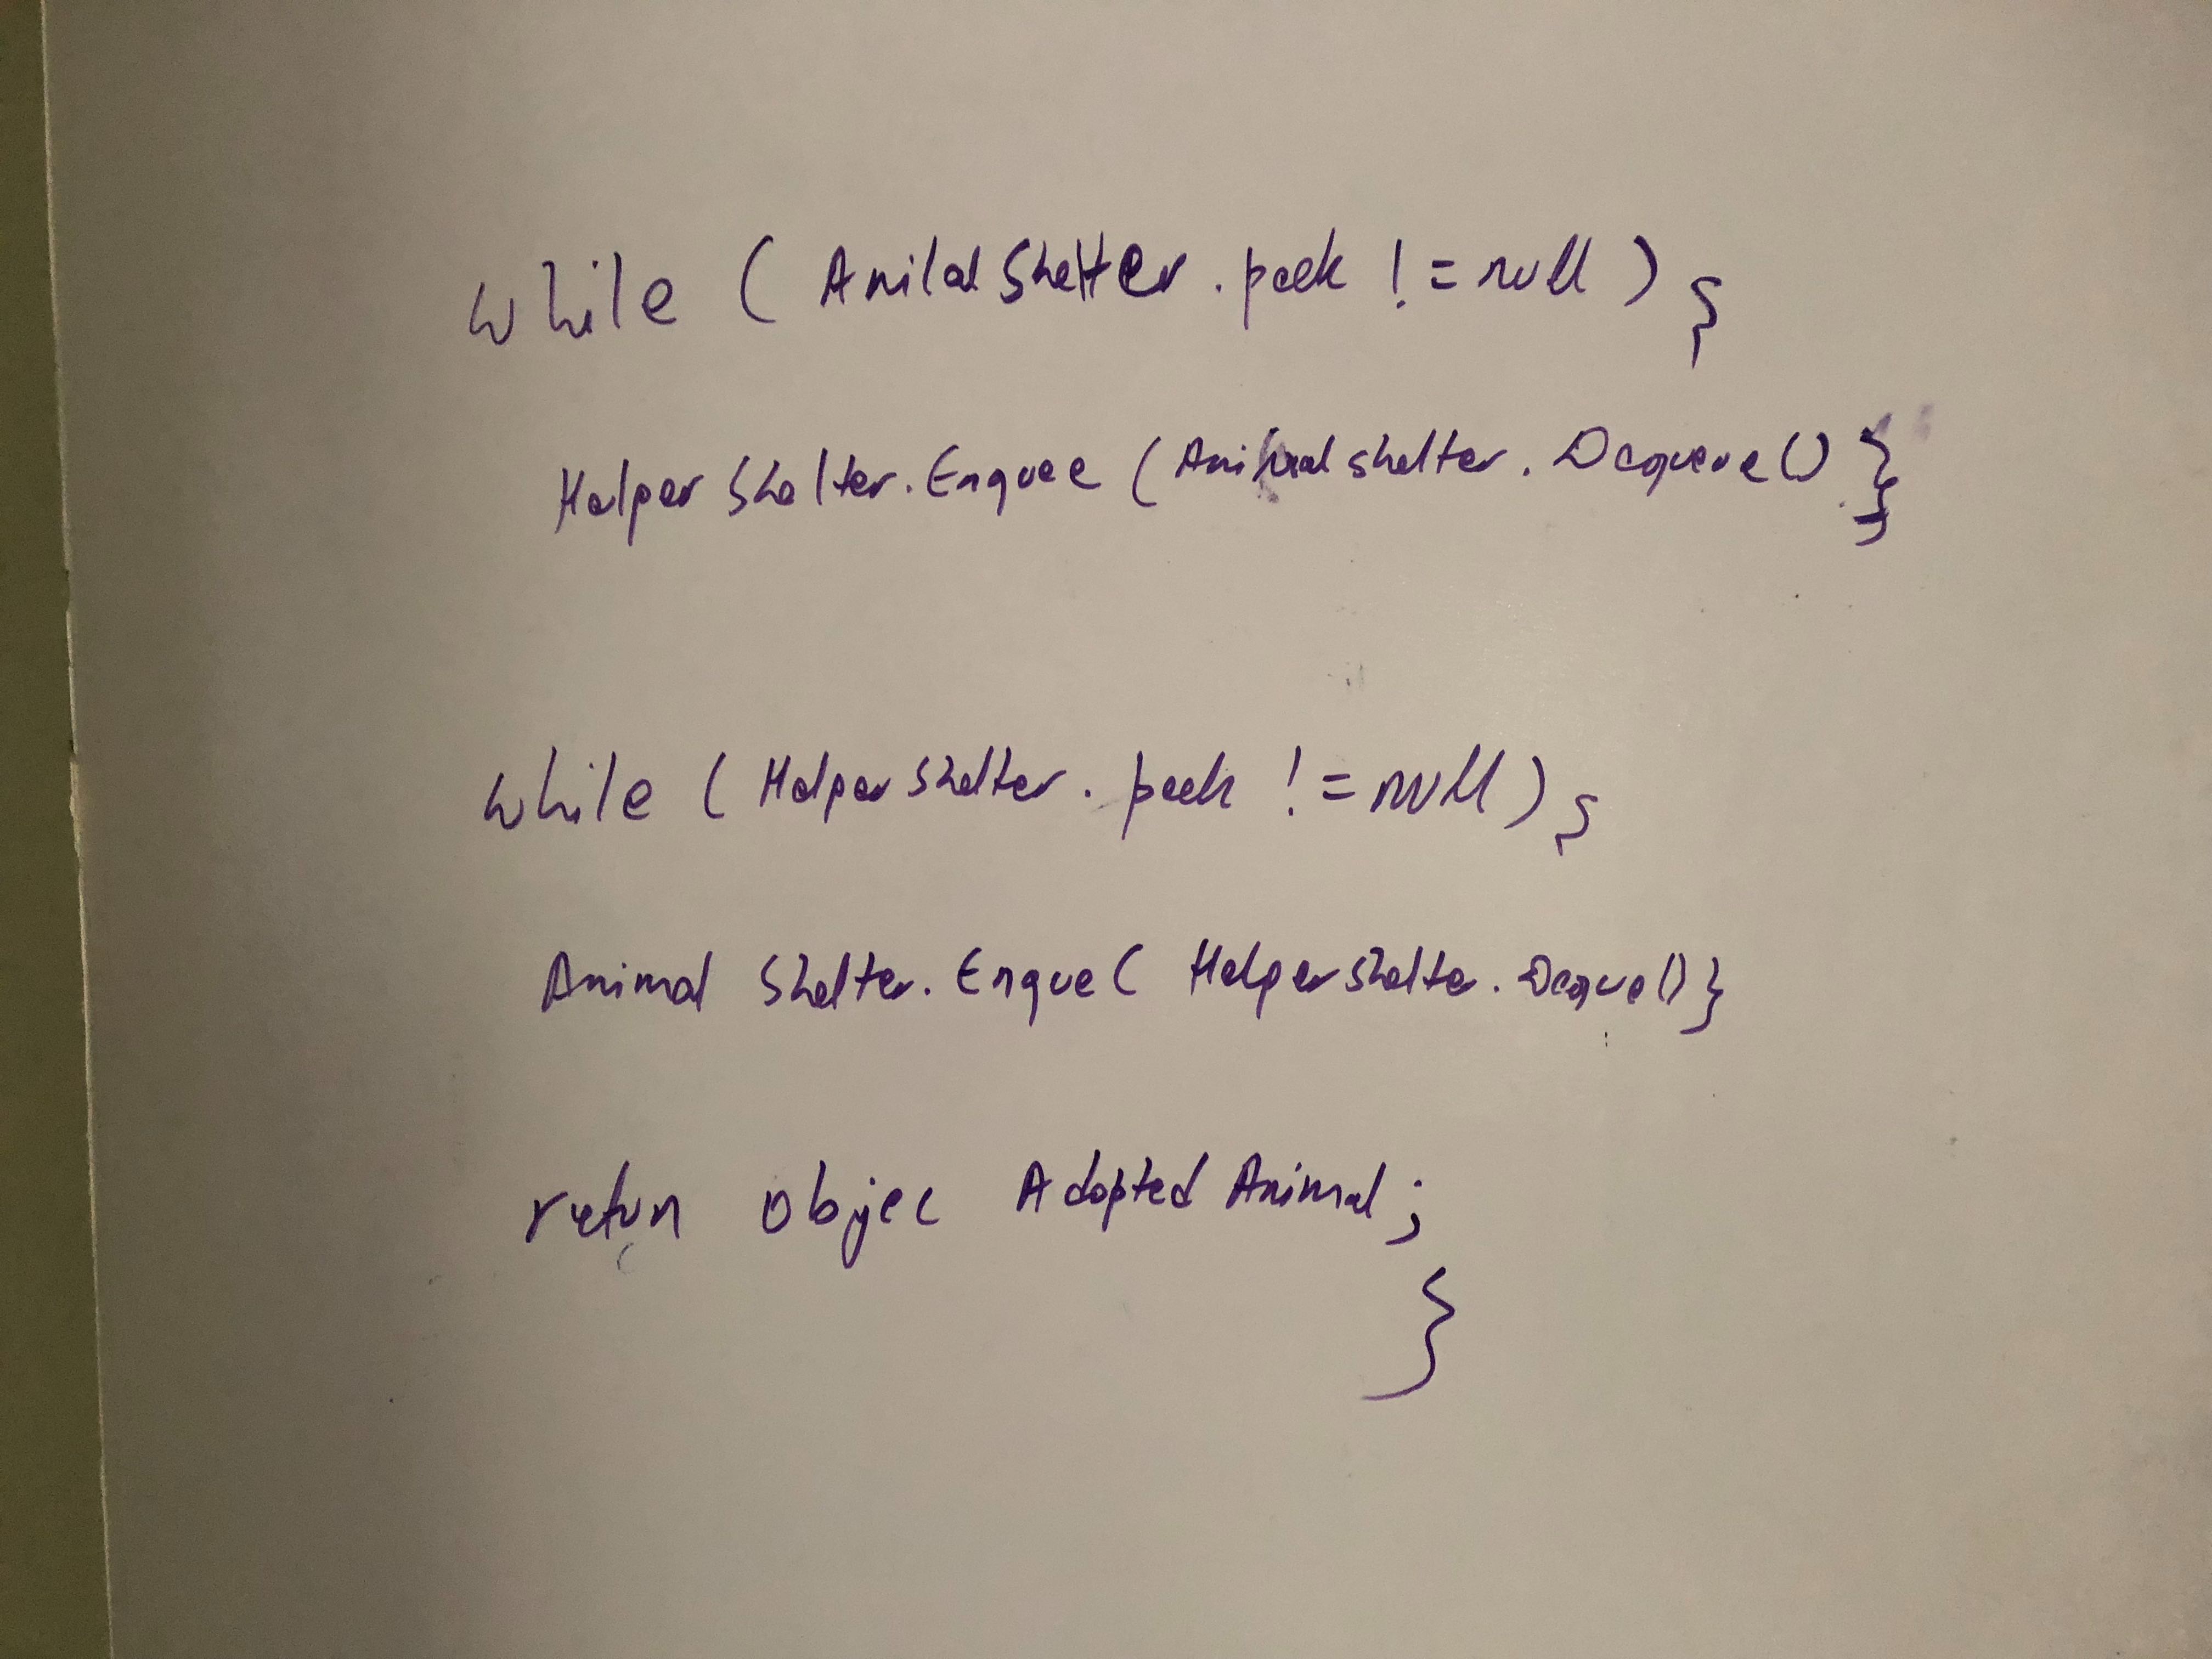 while ( Anilal Shelter . peek ! = null ) {
Helper Shelter. Enquee ( Animal shelter . Dequeue () }
while ( Helper Shelter . peek ! = null ) {
Animal Shelter. Enque ( Helper shelter . Deque () }
retun Objec Adopted Animal ;
}